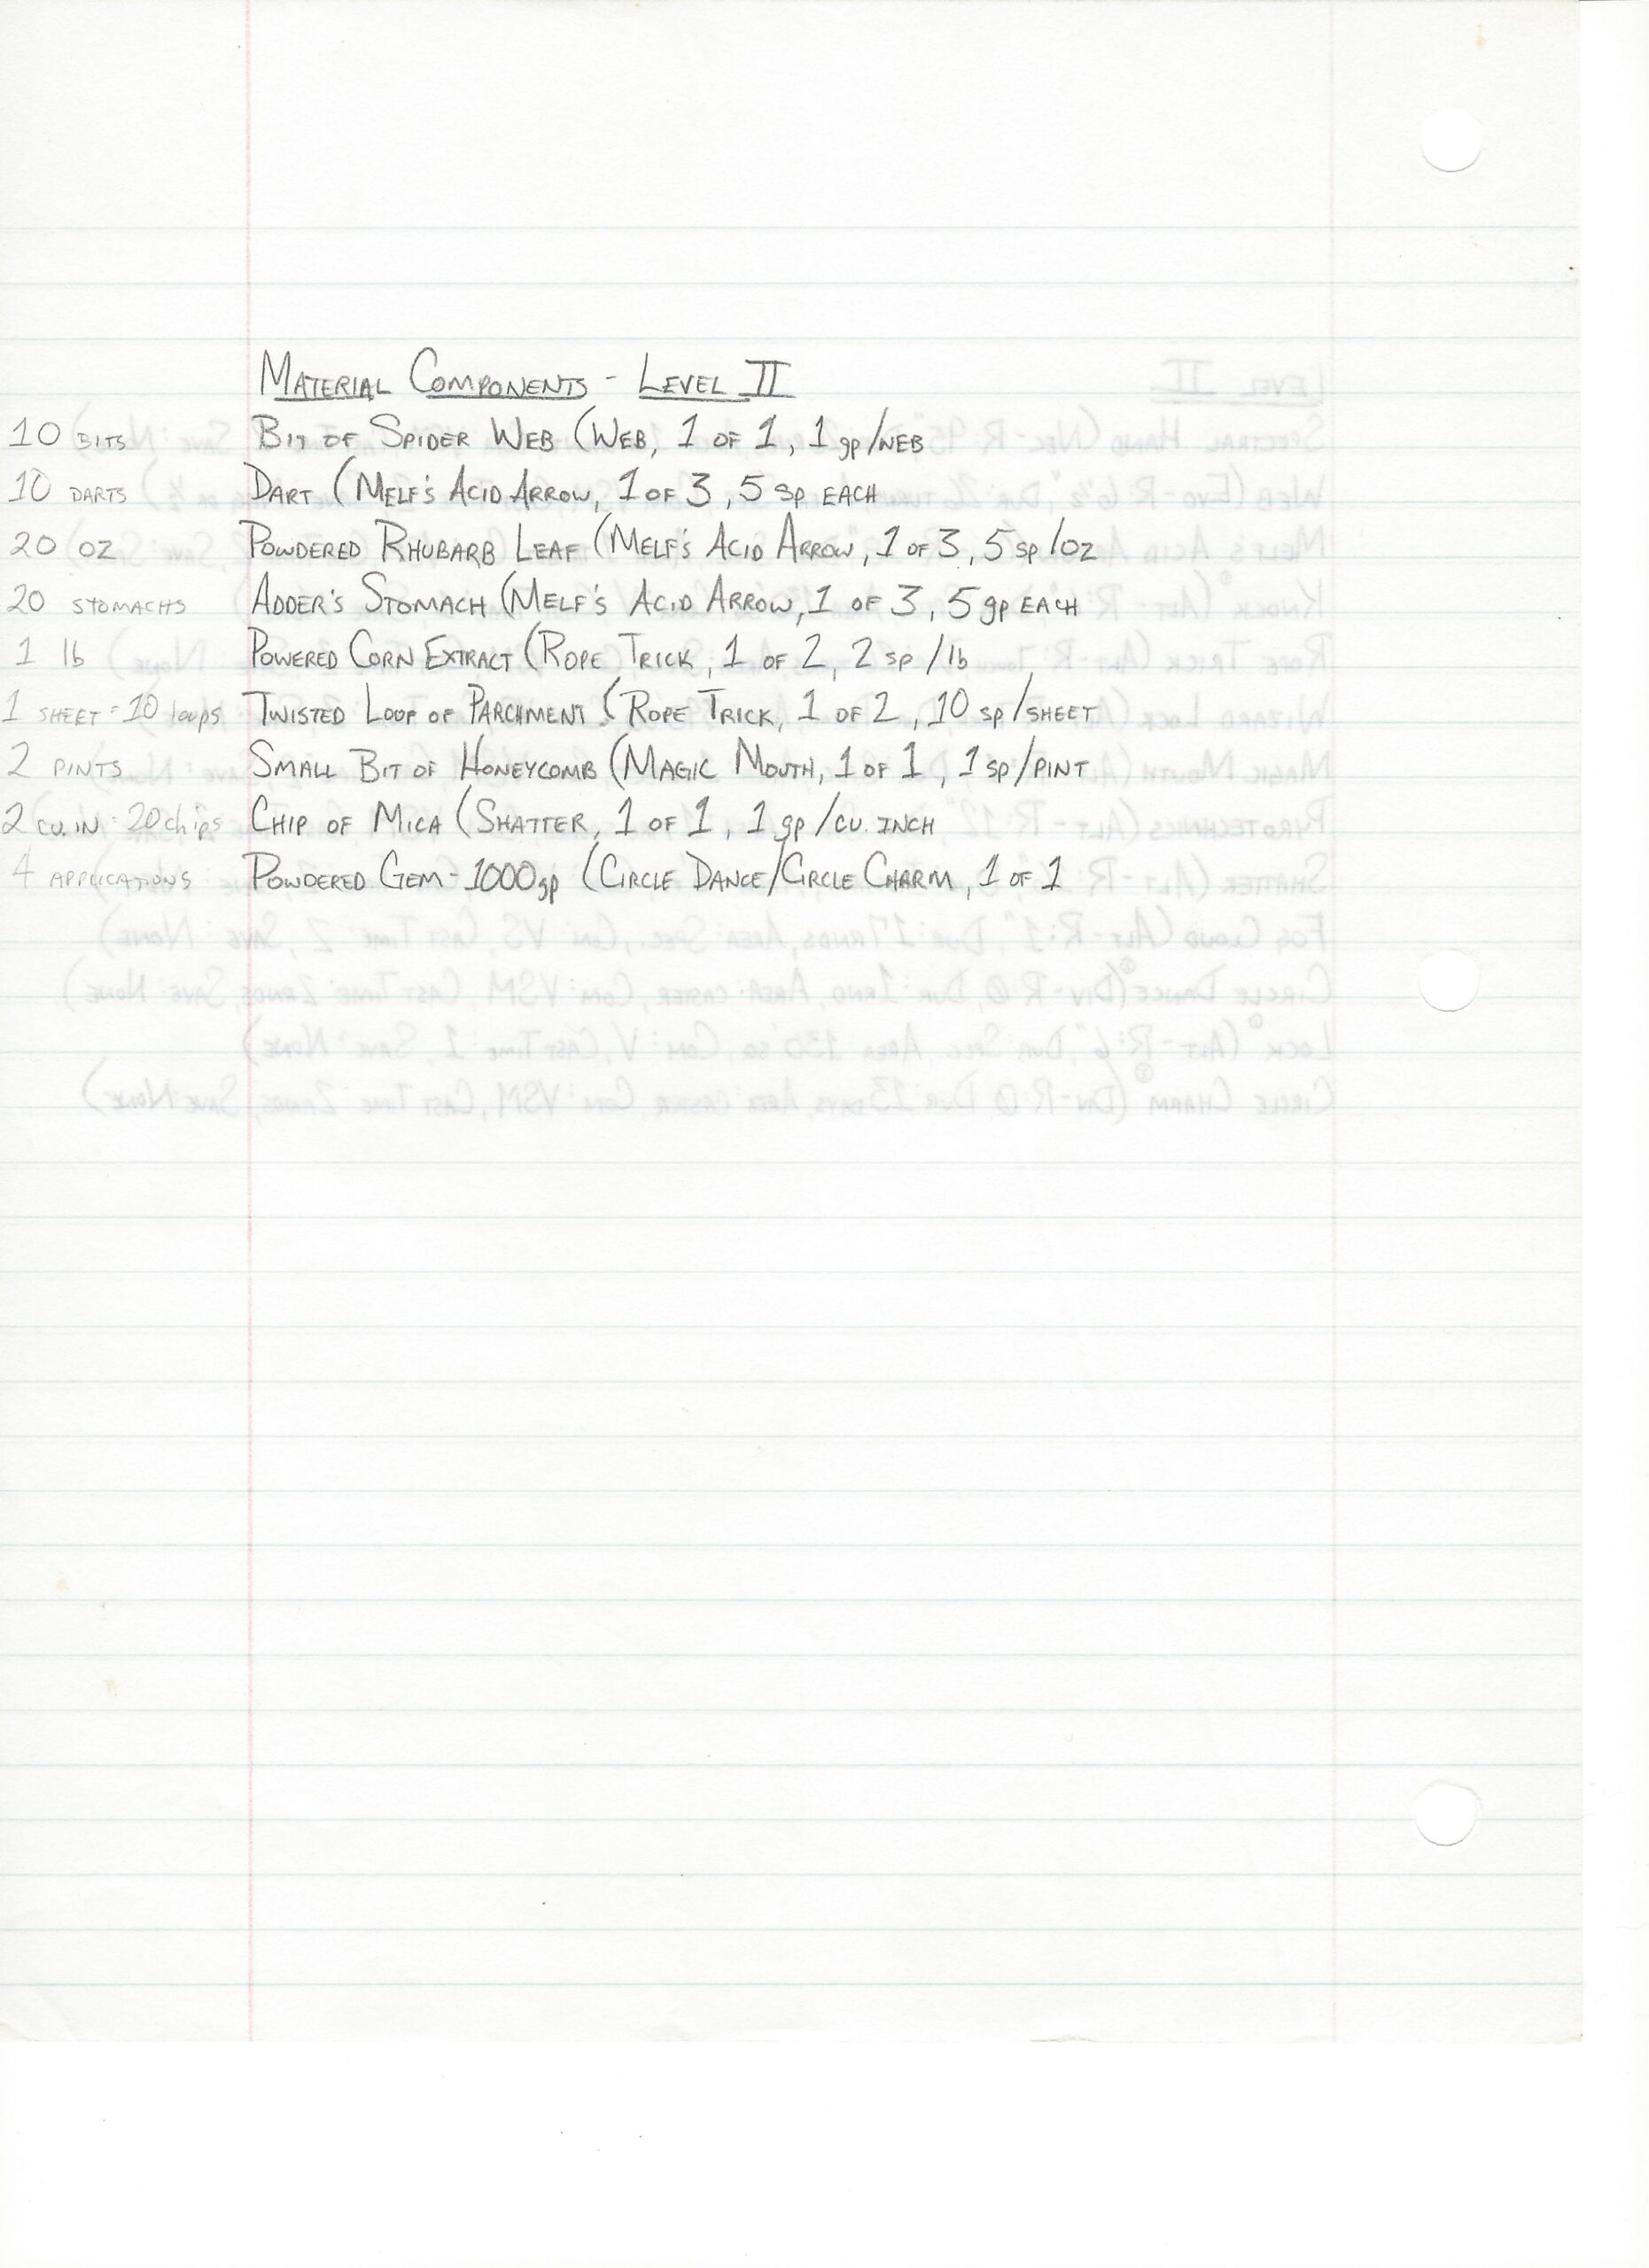 Material Components - Level II
10 bits Bit of Spider Web (Web, 1 of 1, 1 gp/web
10 darts Dart (Melf's Acid Arrow, 1 of 3, 5 sp each
20 oz Powdered Rhubarb Leaf (Melf's Acid Arrow, 1 of 3, 5 sp/oz
20 stomachs Adder's Stomach (Melf's Acid Arrow, 1 of 3, 5 gp each
1 lb Powered Corn Extract (Rope Trick, 1 of 2, 2 sp/lb
1 sheet = 10 loops Twisted Loop of Parchment (Rope Trick, 1 of 2, 10 sp/sheet
2 pints Small Bit of Honeycomb (Magic Mouth, 1 of 1, 1 sp/pint
2 cu. in = 20 chips Chip of Mica (Shatter, 1 of 1, 1 gp/cu. inch
4 applications Powdered Gem - 1000 gp (Circle Dance/Circle Charm, 1 of 1